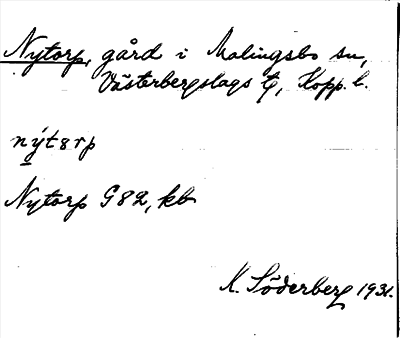 Nytorp, gård i Malingsbo sn,
Västerbergslags tg, Kopp. l.
nýtərp
Nytorp G82, kb
K. Söderberg 1931.